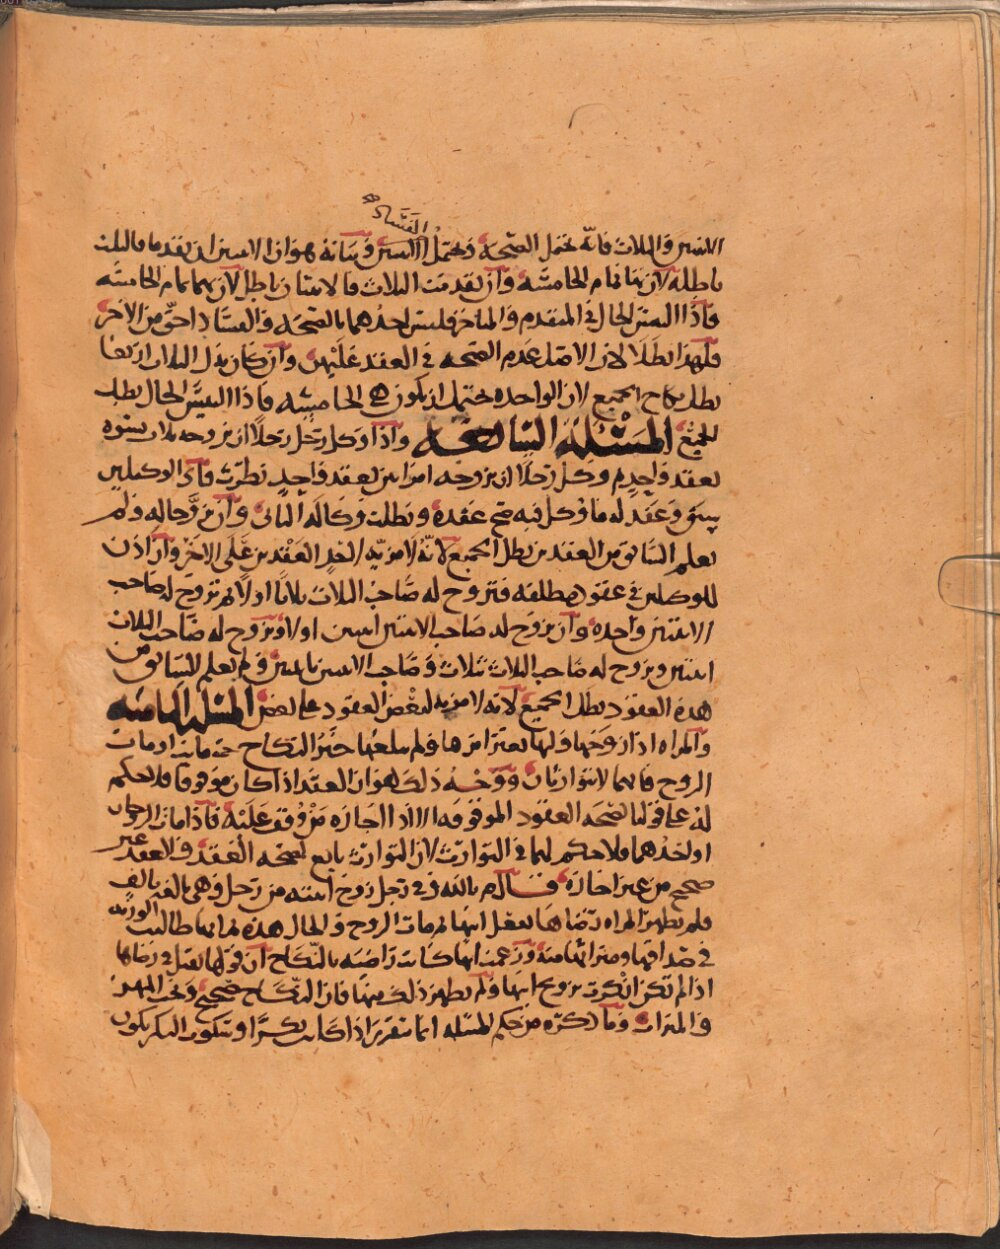 الفساد
الاثنين والثلاث فانه يحتمل الصحه ويحتمل وبيانه هو ان الاثنين ان تقدما فالثلث
باطله لان بها تمام الخامسه وان تقدمت الثلاث فالاثنتان باطل لان بهما تمام الخامسه
فاذا التبس الحال في المتقدم والمتاخر فليس احدهما بالصحه والفساد احق من الاخر
فلهذا بطلا لان الاصل عدم الصحه في العقد عليهن وان كان بدل الثلاث اربعا
بطل نكاح الجميع لان الواحده تحتمل ان تكون هي الخامسه فاذا التبس الحال بطل
الجميع المسئلة السابعه واذا وكل رجل رجلا ان يزوجه ثلاث نسوه
بعقد واحد ثم وكل رجلا ان يزوجه امراتين بعقد واحد نظرت فاي الوكيلين
سبق وعقد له ما وكل فيه صح عقده وبطلت وكاله الثاني وان زوجا له ولم
يعلم السابق من العقدين بطل الجميع لانه لا مزيه لاحد العقدين على الاخر وان اذن
للوكيلين في عقود مطلقه فتزوج له صاحب الثلاث ثلاثا اولا ثم تزوج له صاحب
الاثنتين واحده وان يزوج له صاحب الاثنتين اثنتين اولا ويزوج له صاحب الثلاث
اثنتين ويزوج له صاحب الثلاث ثلاث وصاحب الاثنتين باثنتين ولم يعلم السابق من
هذه العقود بطل الجميع لانه لا مزيه لبعض العقود على بعض المسئله الثامنه
والمراه اذا زوجها وليها بغير امرها ولم يبلغها خبر النكاح حتى ماتت او مات
الزوج فانهما لا يتوارثان ووجه ذلك هو ان العقد اذا كان موقوفا فلا حكم
له على قولنا بصحه العقود الموقوفه الا اذا اجازه من وقف عليه فاذا مات الزوجان
او احدهما فلا حكم لهما في التوارث لان التوارث تابع لصحه العقد ولا عقد
صحيح من غير اجازه قال م بالله في رجل زوج ابنته من رجل وهي بالغ
فلم يظهر المراه رضاها بفعل ابيها ثم مات الزوج والحال هذه ثم انها طالبت الورثه
في صداقها وميراثها منه وزعمت انها كانت راضيه بالنكاح ان قولها يقبل في رضاها
اذا لم تكن انكرت تزويج ابيها ولم يظهر ذلك منها فان النكاح صحيح ويجب المهر
والميراث وما ذكره من حكم المسئله انما يتقرر اذا كانت بكرا او تكون البكر يكون